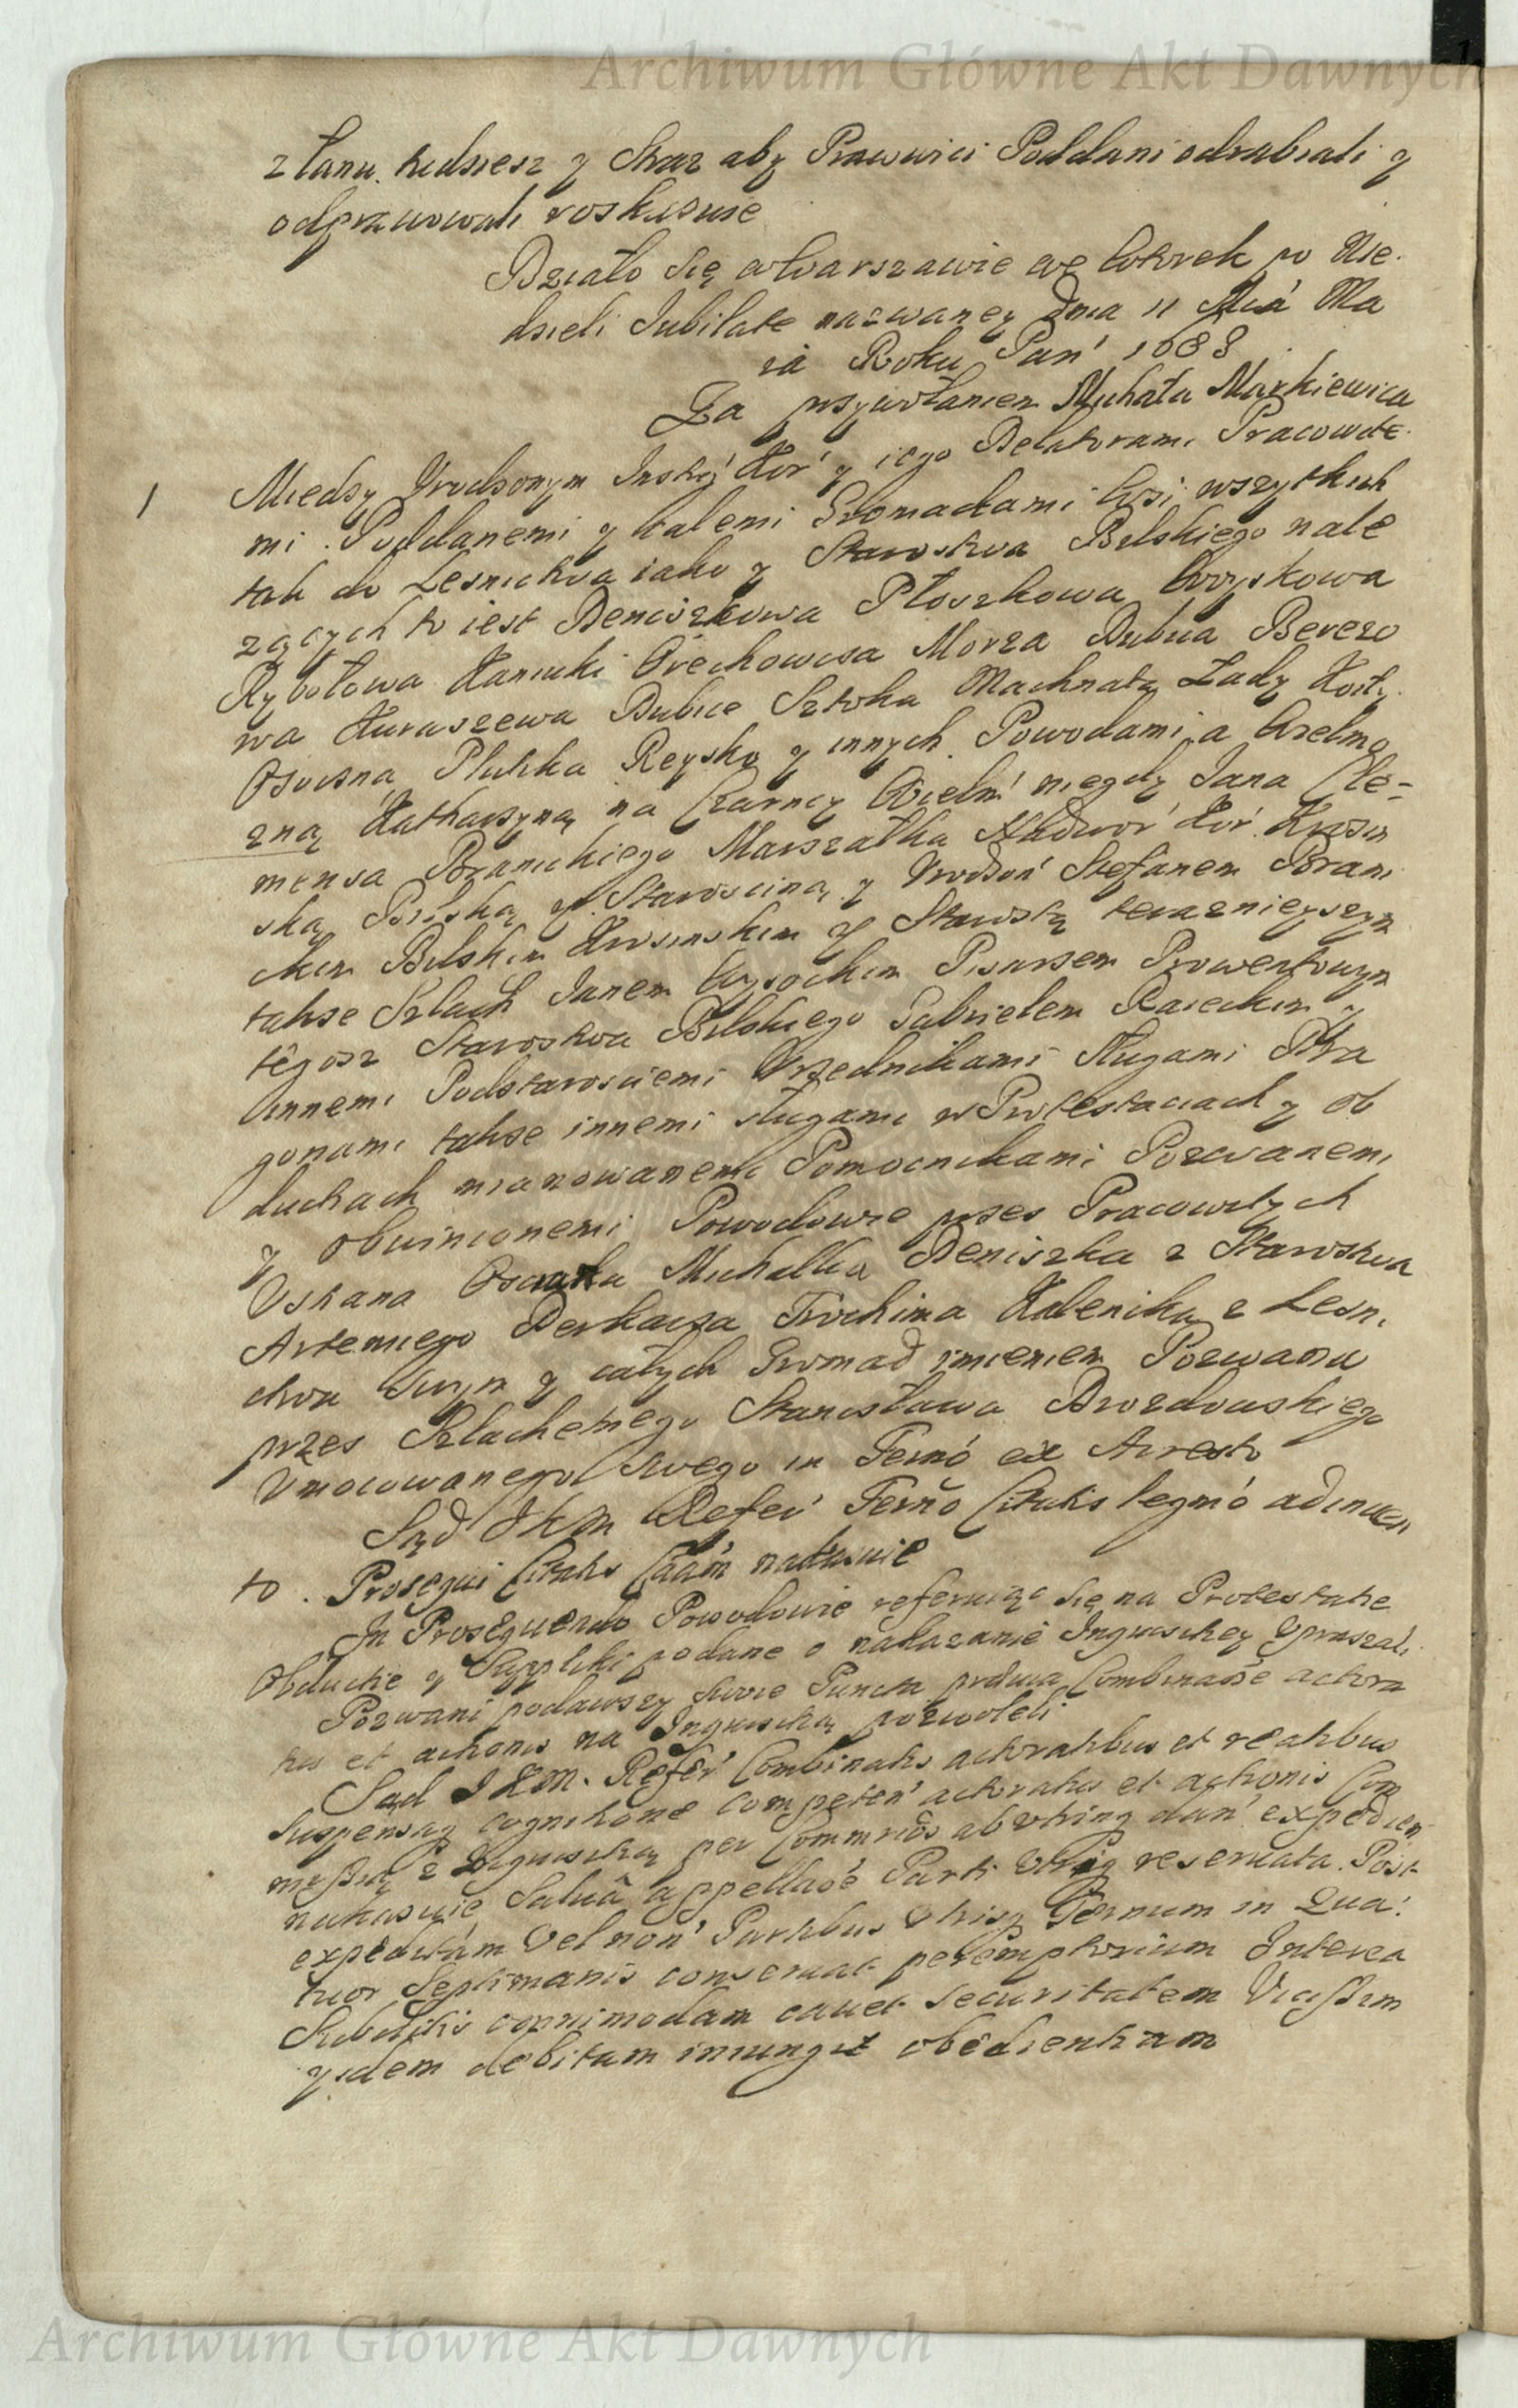 Archiwum Główne Akt Dawnych
z łanu tudziesz y Straz aby Prawuiici Poddani odrabiali y
odprawowali roskasuie
Działo się w Warszawie we Wtorek po Nie-
dzieli Jubilate nazwaney Dnia 11 Mcá Ma
ia Roku Pań 1688
Za przywołaniem Michała Markiewica
1 Miedzy Urodzonym Instẏ Koŕ y iego Delatorami Pracowite-
mi Poddanemi y całemi Gromadami Wsi wszytkich
tak do Lesnictwa iako y Starostwa Bielskiego nale
zących to iest Deniszkowa Ploszkowa Woyskowa
Rybołowa Kaniuki Orechowicza Morza Dubna Berezo
wa Kuraszewa Dubice Sztoka Machnatą Łady Kosty
Osowna Plutka Reysko y innych Powodami a Wielmo
zną Katharzyną na Czarncy Wielḿ niegdy Jana Cle-
mensa Branickiego Marszałka Nadwoŕ Koŕ Krosin
ską Bielską Starościną y Urodzoń Stefanem Brani
ckim Bielskim Krosinskim Starostą terazniejszym
takze Szlach Janem Wysockim Pisarzem Prowentowym
tegosz Starostwa Bielskiego Gabrielem Raieckim y
innemi Podstarosciemi Urzednikami Sługami Dra
gonami takze innemi sługami w Protestaciach y ob
ductach mianowanemi Pomocnikami Pozwanemi
y obwinionemi Powodowie przes Pracowitych
Michałka Deniszka z Starostwa
Artemiego Derkacza Trochima Kalenika z Lesni
ctwa swym y całych Gromad imieniem Pozwani
przes Szlachetnego Stanisława Drozdowskiego
Umocowanego Swego in Termó ex Arresto
Sąd JKM Refeŕ Termó Citatis legmó adinuen
to Prosequi Citatis Caám nakazuie
In Prosequendo Powodowie referuiąc się na Protestatie
Obductie y Suppliki podane o nakazanie Inquisitiey Upraszali
Pozwani podawszy swoie Puncta prodwa Combinaóe actora
tus et actionis na Inquisitią pozwoleli
Sąd JKM Refeŕ Combinatis actoratibus et reatibus
Suspensaq cognitione competeń actoratus et actionis Com
missią z Inquisitią per Commrios ab utrinq dań expedien
nakazuie Salua appellaóe Parti Utriq reseruata Post
expeditam Vel non Partibus Utrisq Termum in Qua
tuor Septimanis conseruat peremptorium Interea
Subditis omnimodam cauet securitatem Vicissim
ijsdem debitam iniungit obedientiam
Archiwum Główne Akt Dawnych